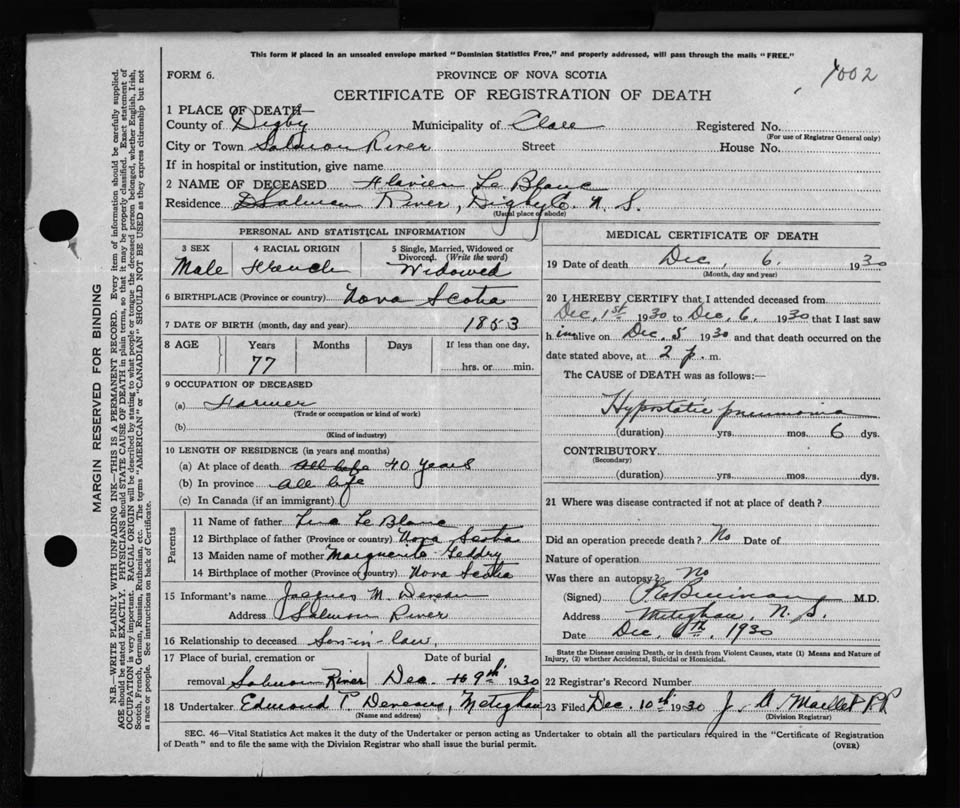 This form if placed in an unsealed envelope marked "Dominion Statistics Free," and properly addressed, will pass through the mails "FREE."
FORM 6.
PROVINCE OF NOVA SCOTIA
1002
CERTIFICATE OF REGISTRATION OF DEATH
1 PLACE OF DEATH—
County of Digby Municipality of Clare Registered No.
(For use of Registrar General only)
City or Town Salmon River Street House No.
If in hospital or institution, give name
2 NAME OF DECEASED Flavien Le Blanc
Residence Salmon River, Digby Co. N. S.
(Usual place of abode)
PERSONAL AND STATISTICAL INFORMATION
3 SEX 4 RACIAL ORIGIN 5 Single, Married, Widowed or Divorced. (Write the word)
Male French Widowed
6 BIRTHPLACE (Province or country) Nova Scotia
7 DATE OF BIRTH (month, day and year) 1853
8 AGE Years Months Days If less than one day,
77 hrs. or min.
9 OCCUPATION OF DECEASED
(a) Farmer
(Trade or occupation or kind of work)
(b)
(Kind of industry)
10 LENGTH OF RESIDENCE (in years and months)
(a) At place of death all life 40 years
(b) In province all life
(c) In Canada (if an immigrant)
Parents
11 Name of father Le Blanc
12 Birthplace of father (Province or country) Nova Scotia
13 Maiden name of mother Marguerite Geddry
14 Birthplace of mother (Province or country) Nova Scotia
15 Informant's name Jacques M. Deveau
Address Salmon River
16 Relationship to deceased Son-in-law
17 Place of burial, cremation or Date of burial
removal Salmon River Dec 9th 1930
18 Undertaker Edmond T. Deveau, Meteghan
(Name and address)
MEDICAL CERTIFICATE OF DEATH
19 Date of death Dec, 6. 1930
(Month, day and year)
20 I HEREBY CERTIFY that I attended deceased from
Dec, 1st 1930 to Dec, 6. 1930 that I last saw
him alive on Dec, 5 1930 and that death occurred on the
date stated above, at 2 p. m.
The CAUSE of DEATH was as follows:—
Hypostatic pneumonia
(duration) yrs. mos. 6 dys.
CONTRIBUTORY
(Secondary)
(duration) yrs. mos. dys.
21 Where was disease contracted if not at place of death?
Did an operation precede death? No Date of
Nature of operation
Was there an autopsy? No
(Signed) M.D.
Address Meteghan, N. S.
Date Dec, 6th, 1930
State the Disease causing Death, or in death from Violent Causes, state (1) Means and Nature of
Injury, (2) whether Accidental, Suicidal or Homicidal.
22 Registrar's Record Number
23 Filed Dec. 10th 1930 J. A. Maillet
(Division Registrar)
SEC. 46—Vital Statistics Act makes it duty of the Undertaker or person acting as Undertaker to obtain all the particulars required in the "Certificate of Registration
of Death" and to file the same with the Division Registrar who shall issue the burial permit.
(OVER)
MARGIN RESERVED FOR BINDING
N.B.—WRITE PLAINLY WITH UNFADING INK—THIS IS A PERMANENT RECORD. Every item of information should be carefully supplied.
AGE should be stated EXACTLY. PHYSICIANS should STATE CAUSE OF DEATH in plain terms, so that it may be properly classified. Exact statement of
OCCUPATION is very important. RACIAL ORIGIN will be described by stating to what people or tongue the deceased person belonged, whether English, Irish,
Scotch, French, German, Russian, Ruthenian, etc. The terms "AMERICAN" or "CANADIAN" SHOULD NOT BE USED as they express citizenship but not
a race or people. See instructions on back of Certificate.